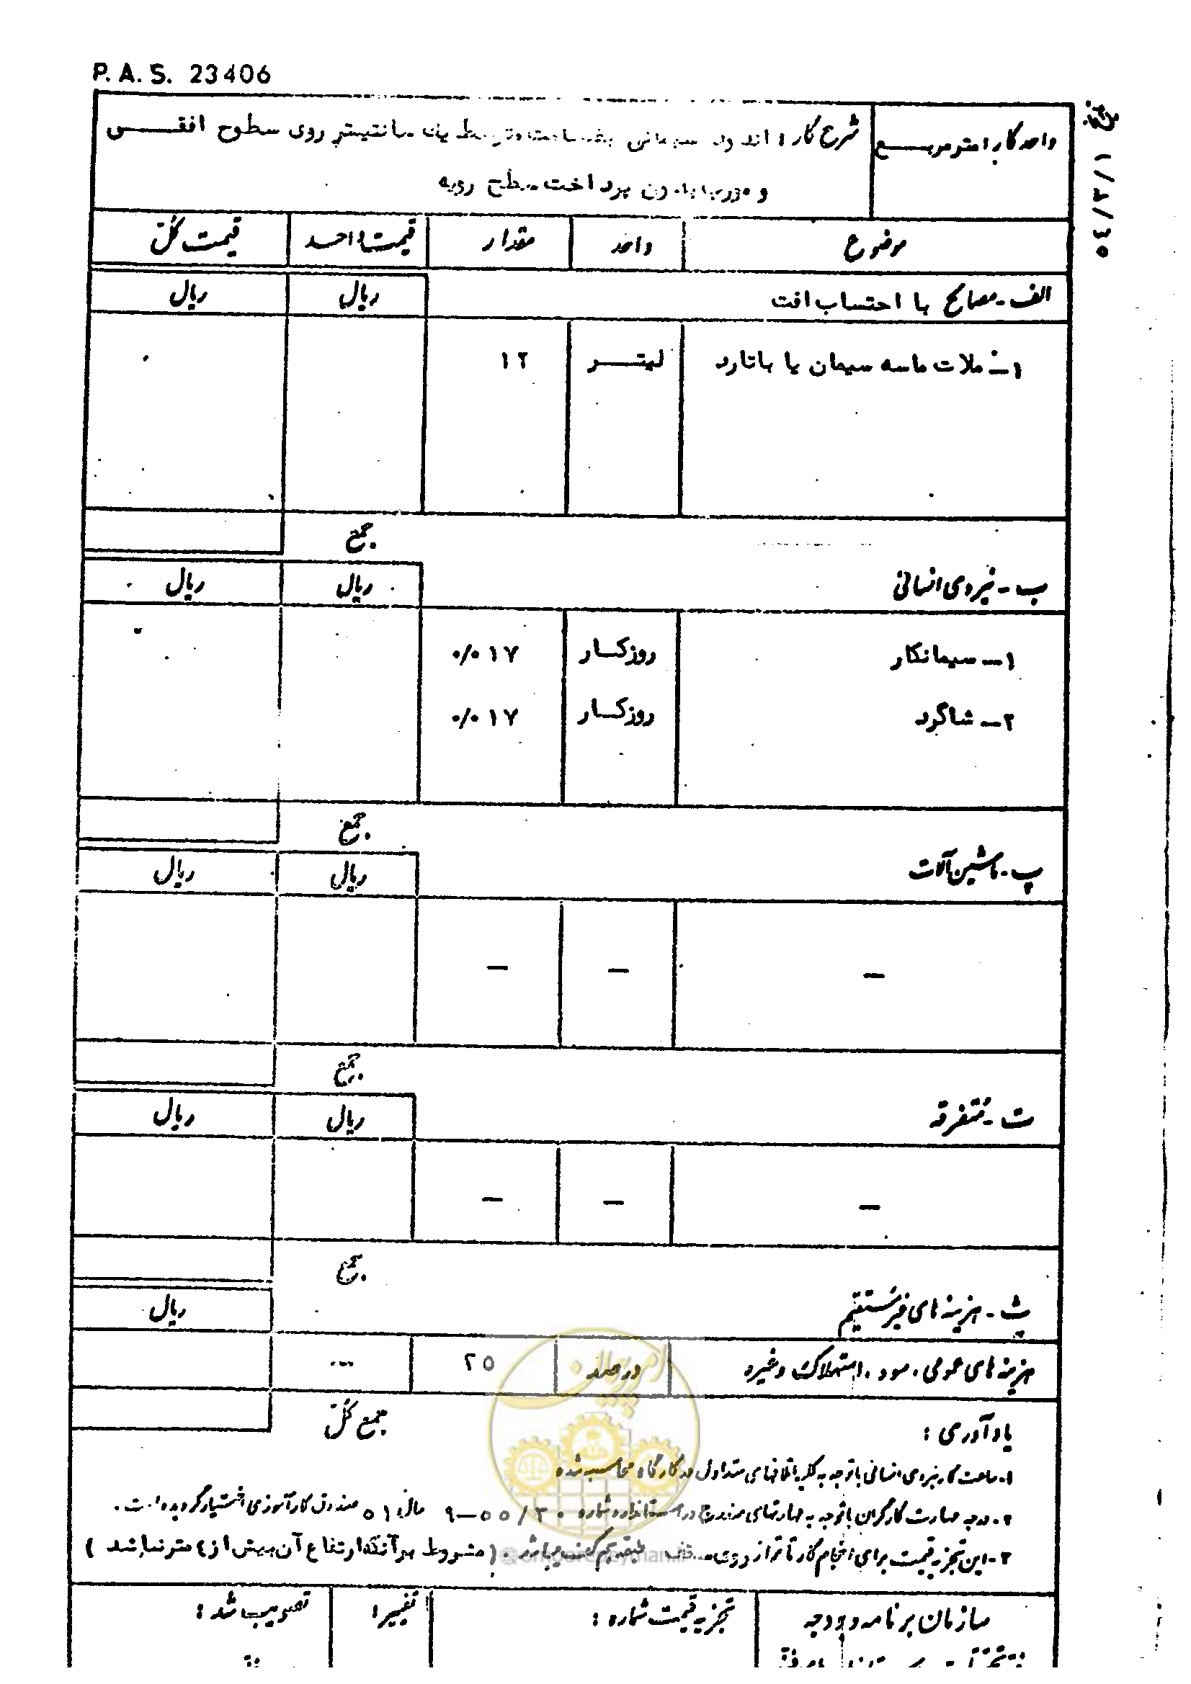 P.A.S. 23406
واحد کار : متر مربع
شرح کار : اندود سیمانی بضخامت متوسط یک سانتیمتر روی سطوح افقی
و بدون پرداخت سطح رویه
۵۴/۳/۱
موضوع واحد مقدار قیمت واحد قیمت کل
الف - مصالح با احتساب افت ریال ریال
۱- ملات ماسه سیمان یا باتارد لیتر ۱۲
جمع
ب - نیروی انسانی ریال ریال
۱- سیمانکار روزکار ۰/۰۱۷
۲- شاگرد روزکار ۰/۰۱۷
جمع
پ - ماشین آلات ریال ریال
— — —
جمع
ت - متفرقه ریال ریال
— — —
جمع
ث - هزینه های غیر مستقیم ریال
هزینه های عمومی ، سود ، استهلاک وغیره درصد ۲۵ ...
جمع کل
یادآوری :
۱- ساعت کار نیروی انسانی با توجه به کلیه اتلافهای متداول در کارگاه محاسبه شده
۲- درجه مهارت کارگران با توجه به مهارتهای مندرج در استاندارد شماره ۹-۵۵/۳۰ سال ۵۱ صندوق کارآموزی اختیار گردیده است .
۳- این تجزیه قیمت برای انجام کار تا تراز روی سقف طبقه همکف میباشد . (مشروط بر آنکه ارتفاع آن بیش از ۴ متر نباشد )
سازمان برنامه و بودجه
تجزیه قیمت شماره :
تغییر :
تصویب شد :